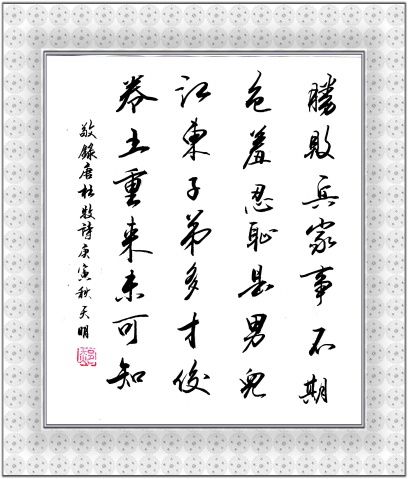 勝敗兵家事不期
包羞忍恥是男兒
江東子弟多才俊
卷土重來未可知
敬錄唐杜牧詩庚寅秋天明